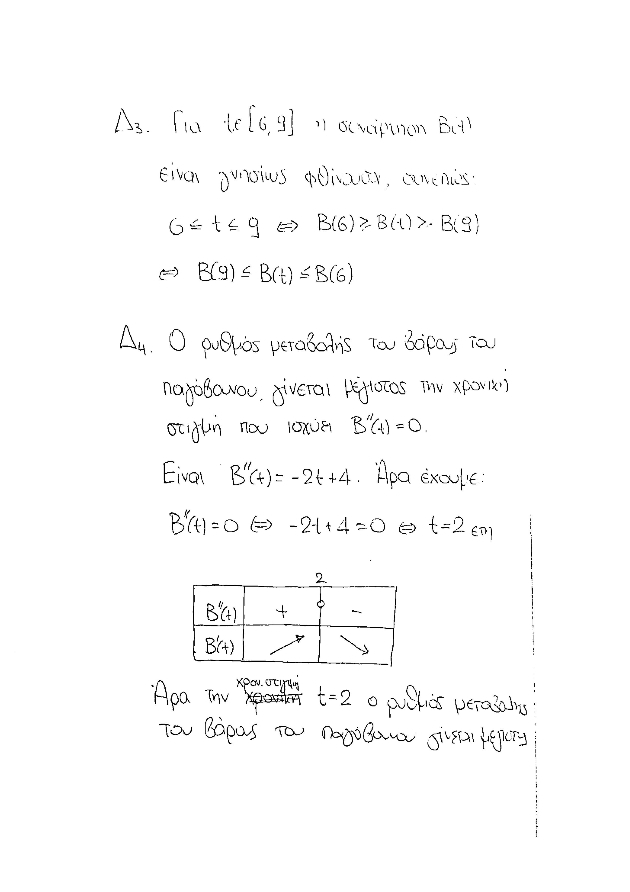 Δ3. Για t∈[6,9] η συνάρτηση B(t)
είναι γνησίως φθίνουσα, συνεπώς:
6 ≤ t ≤ 9 ⇔ B(6) ≥ B(t) ≥ B(9)
⇔ B(9) ≤ B(t) ≤ B(6)
Δ4. Ο ρυθμός μεταβολής του βάρους του
παγόβουνου, γίνεται μέγιστος την χρονική
στιγμή που ισχύει B''(t) = 0.
Είναι B''(t) = -2t + 4. Άρα έχουμε:
B''(t) = 0 ⇔ -2t + 4 = 0 ⇔ t = 2 επη
2
B''(t) + -
B'(t) ↗ ↘
Άρα την χρον. στιγμή t=2 ο ρυθμός μεταβολής
του βάρους του παγόβουνου γίνεται